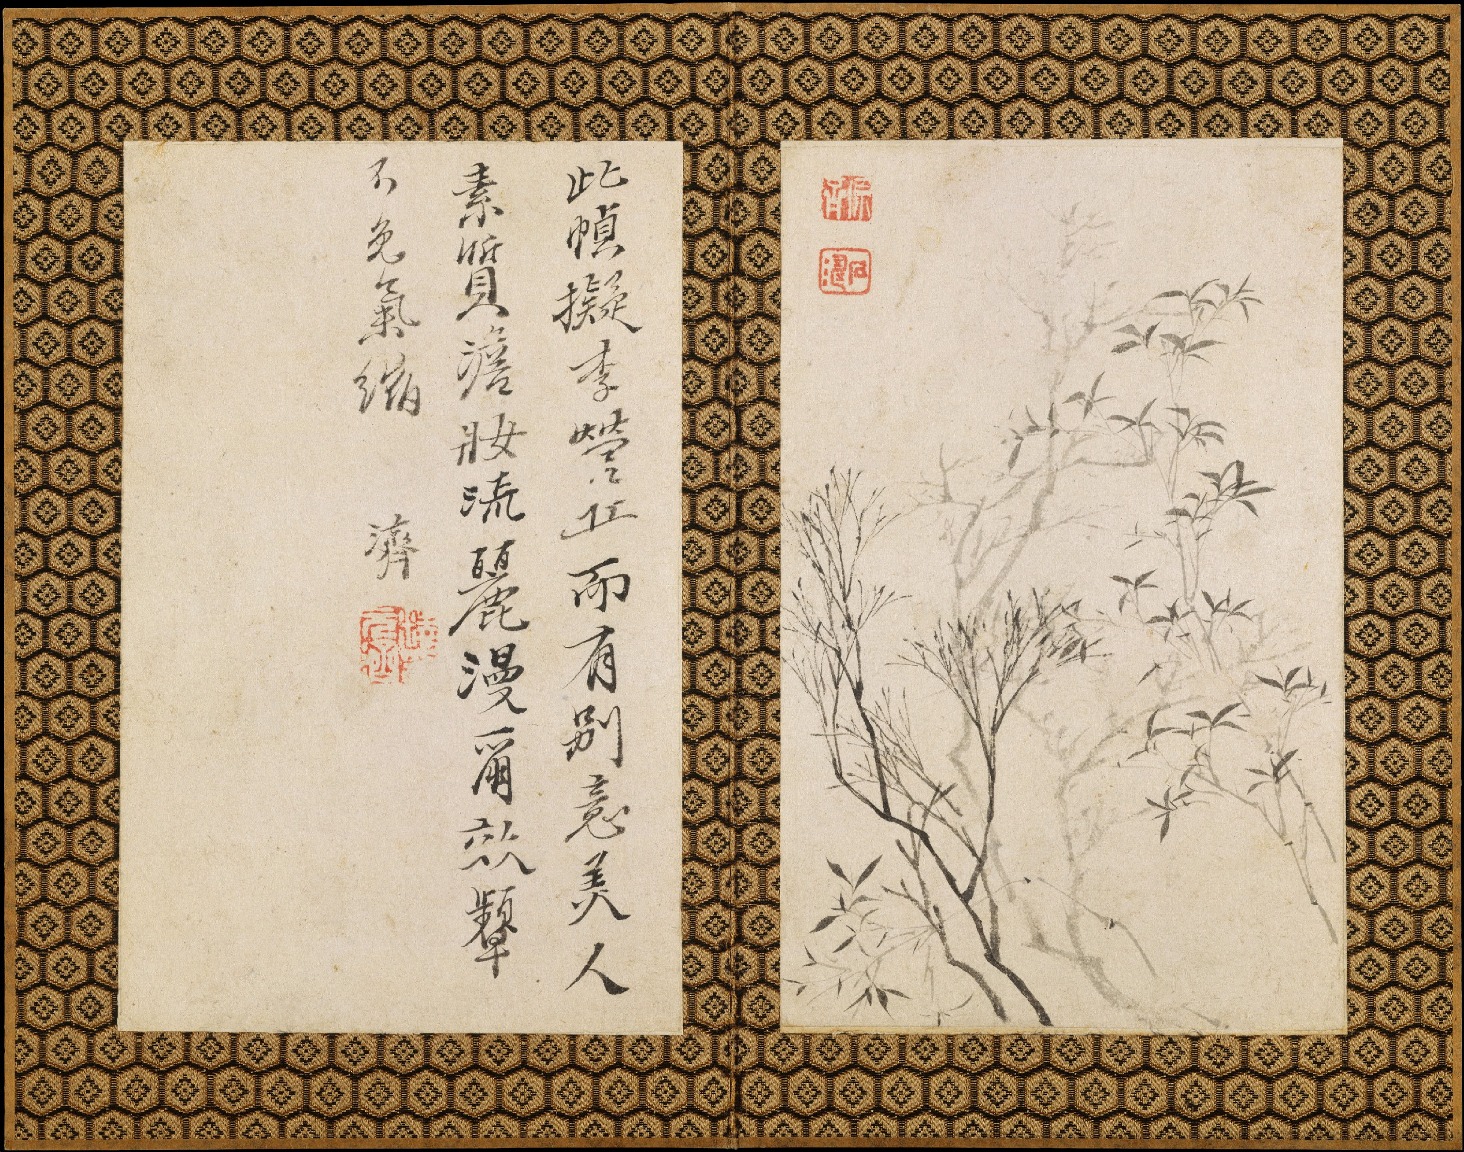 此幀擬李營丘而有別意美人
素質澹妝流麗漫爾效顰
不免氣縮 濟
石濤